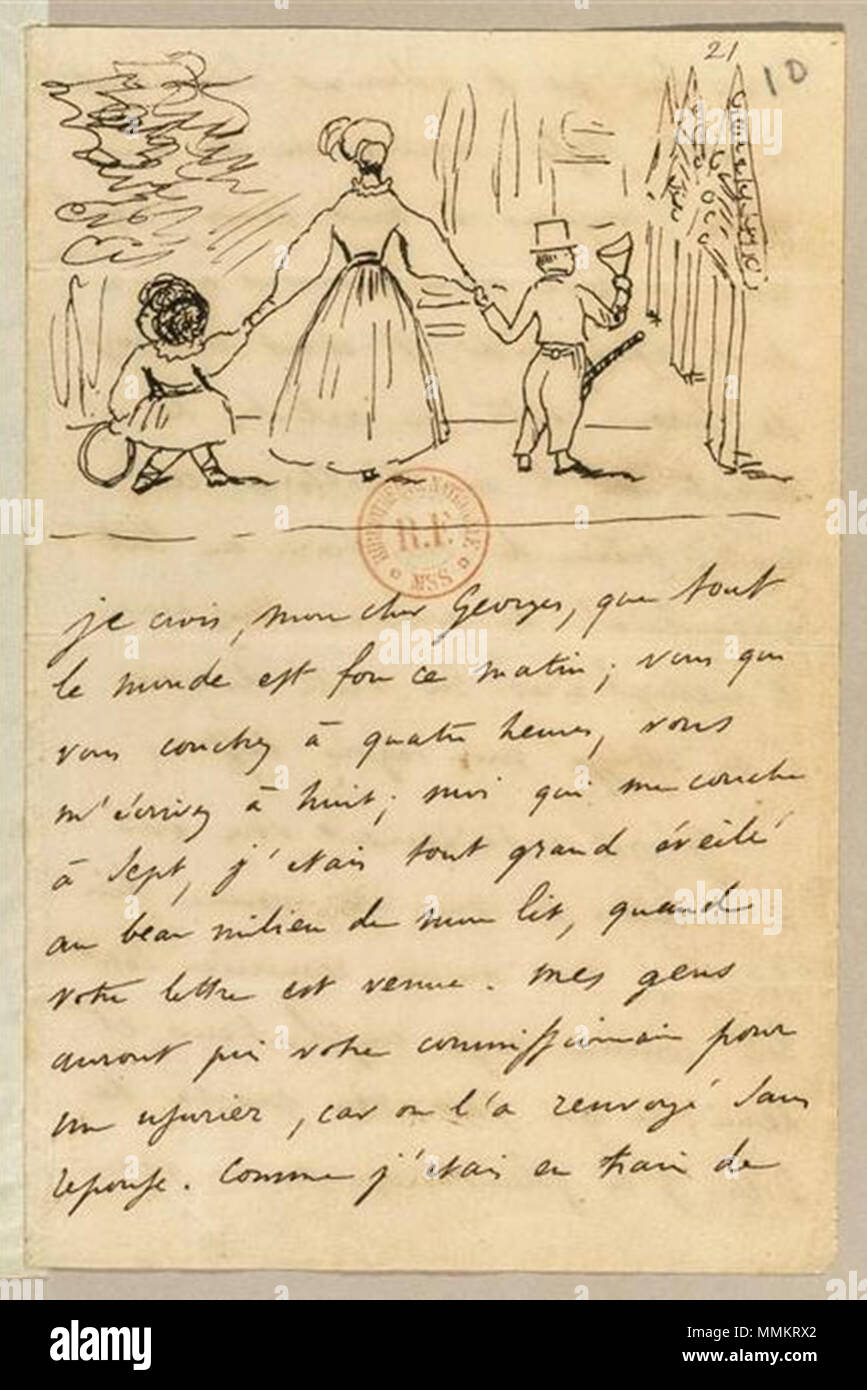 21
10
BIBLIOTHEQUE NATIONALE
R.F.
MSS
je crois, mon cher Georges, que tout
le monde est fou ce matin ; vous qui
vous couchez à quatre heures, vous
m'écrivez à huit ; moi qui me couche
à sept, j'étais tout grand éveillé
au beau milieu de mon lit, quand
votre lettre est venue. mes gens
auront pris votre commissionnaire pour
un usurier, car on l'a renvoyé sans
reponse. Comme j'étais en train de
alamy
Image ID: MMKRX2
www.alamy.com